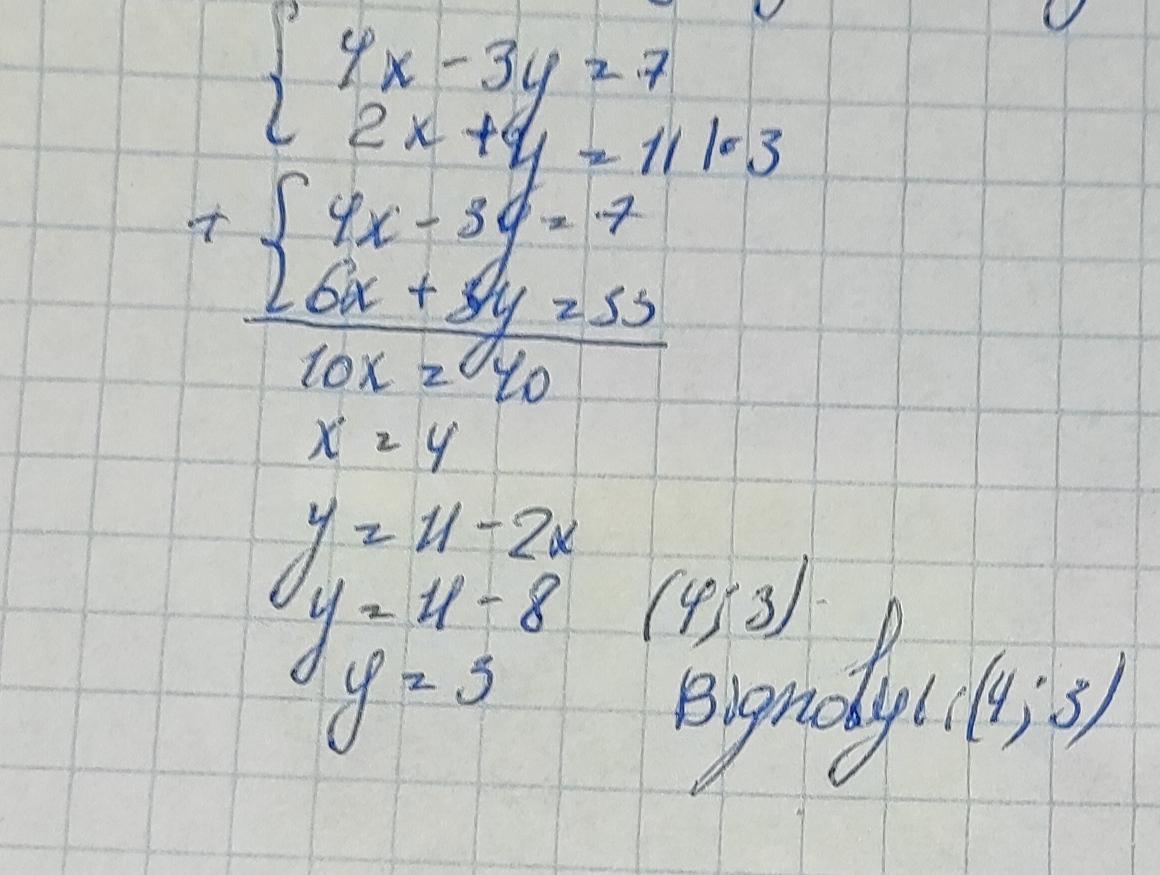 4x - 3y = 7
2x + y = 11 |·3
+ 4x - 3y = 7
6x + 3y = 33
10x = 40
x = 4
y = 11 - 2x
y = 11 - 8 (4; 3)
y = 3
Відповідь: (4; 3)